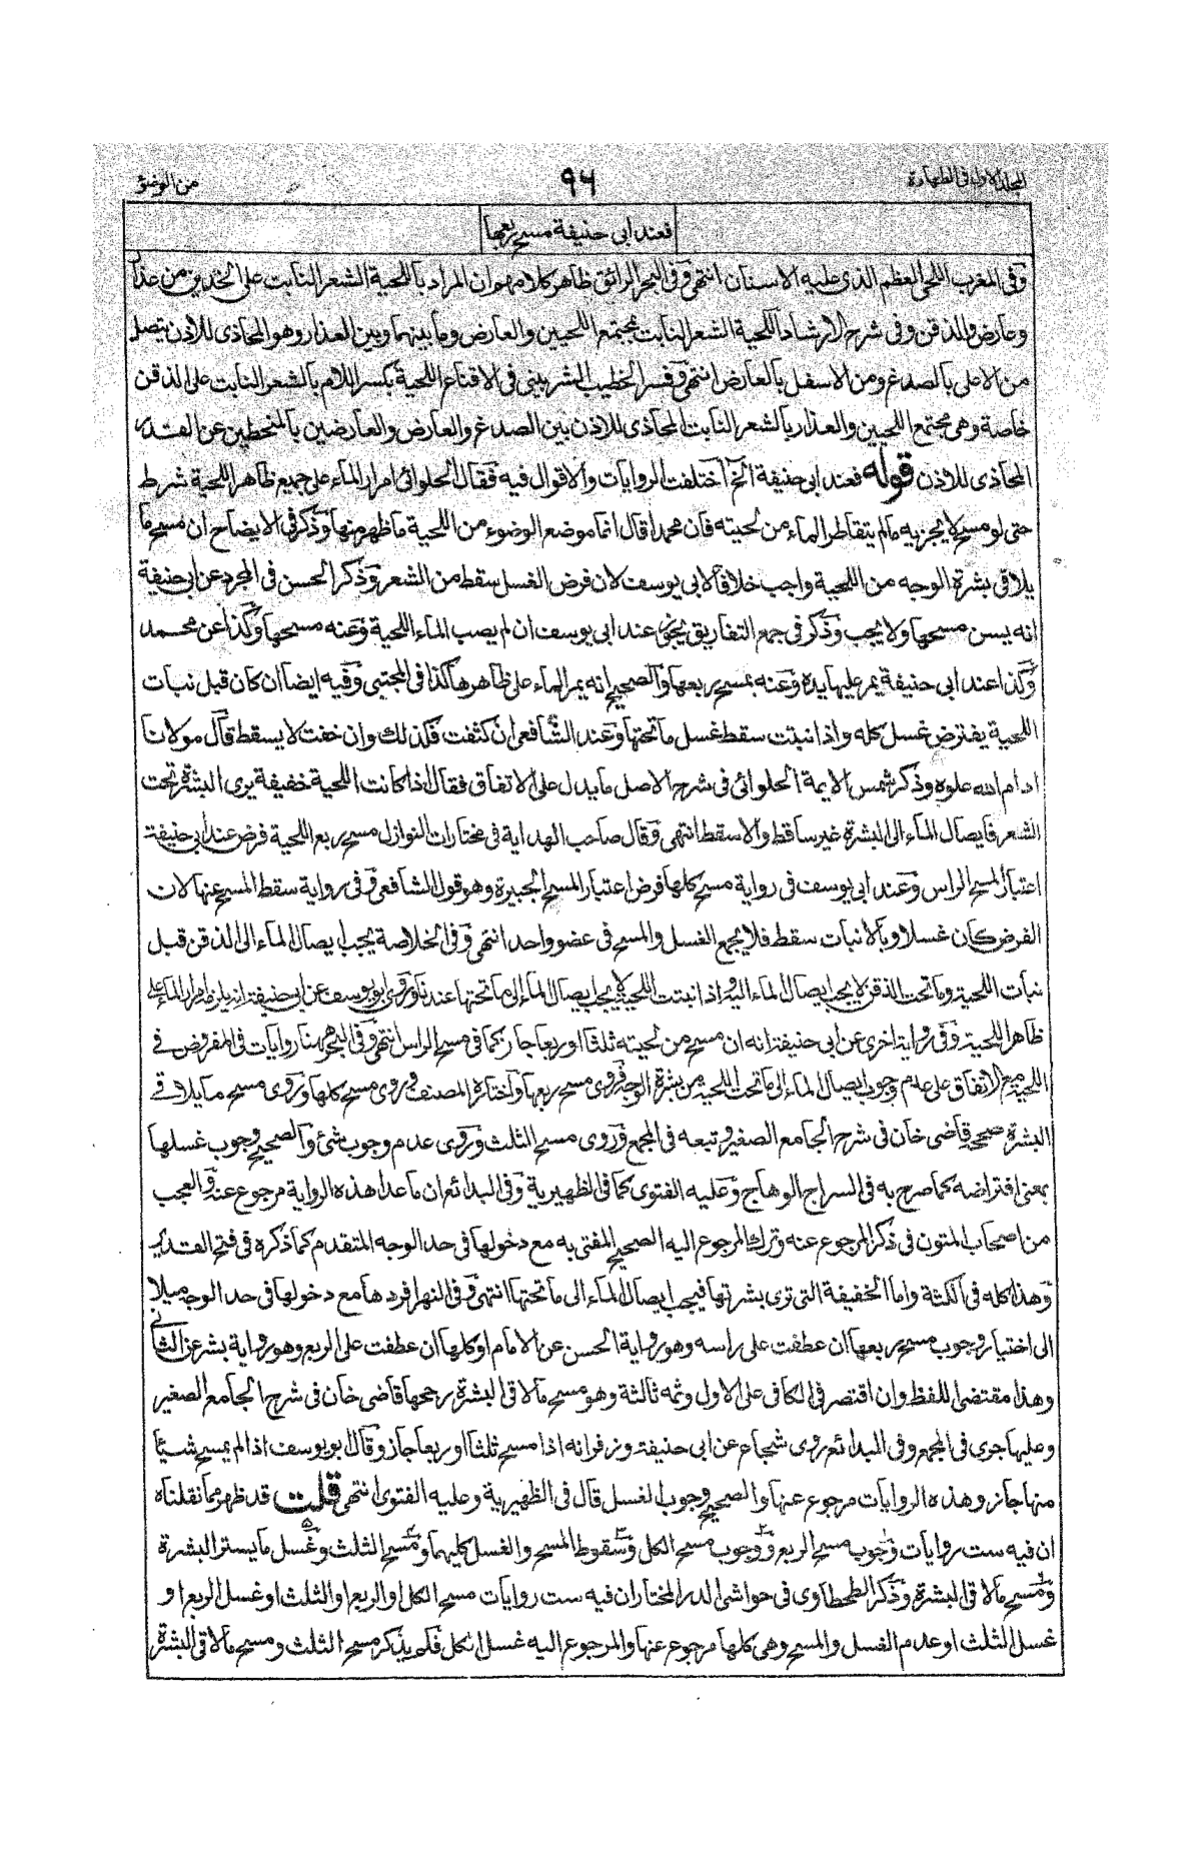 المجلد الاول في الطهارة
٩٦
من الوضؤ
فعند ابى حنيفة مسح ربعها
وفى المغرب اللحى العظم الذى عليه الاسنان انتهى وفى البحر الرائق ظاهر كلامهم ان المراد باللحية الشعر النابت على الخدين من عذار
وعارض والذقن وفى شرح الارشاد اللحية الشعر النابت بمجتمع اللحيين والعارض وما بينهما وبين العذار وهو المحاذى للاذن يتصل
من الاعلى بالصدغ ومن الاسفل بالعارض انتهى وفسر الخطيب الشربينى فى الاقناع اللحية بكسر اللام بالشعر النابت على الذقن
خاصة وهى مجتمع اللحيين والعذار بالشعر النابت المحاذى للاذن بين الصدغ والعارض والعارضين بالمنحطين عن القدر
المحاذى للاذن قوله فعند ابى حنيفة الخ اختلفت الروايات والاقوال فيه فقال الحلوائى امرار الماء على جميع ظاهر اللحية شرط
حتى لو مسح لا يجزيه مالم يتقاطر الماء من لحيته فان محمدا قال انما موضع الوضوء من اللحية ما ظهر منها وذكر فى الايضاح ان مسح ما
يلاقى بشرة الوجه من اللحية واجب خلافا لابى يوسف لان فرض الغسل سقط من الشعر وذكر الحسن فى المجرد عن ابى حنيفة
انه يسن مسحها ولا يجب وذكر فى جمع التفاريق يجوز عند ابى يوسف ان لم يصب الماء اللحية وعنه مسحها وكذا عن محمد
وكذا عند ابى حنيفة يمر عليها يده وعنه يمسح ربعها والصحيح انه يمر الماء على ظاهرها كذا فى المجتبى وفيه ايضا ان كان قبل نبات
اللحية يفترض غسل كله واذا نبتت سقط غسل ما تحتها وعند الشافعى ان كثفت فكذلك وان خفت لا يسقط قال مولانا
ادام الله علوه وذكر شمس الايمة الحلوائى فى شرح الاصل ما يدل على الاتفاق فقال اذا كانت اللحية خفيفة يرى البشرة تحت
الشعر فايصال الماء الى البشرة غير ساقط والا سقط انتهى وقال صاحب الهداية فى مختارات النوازل مسح ربع اللحية فرض عند ابى حنيفة
اعتبارا لمسح الراس وعند ابى يوسف فى رواية مسح كلها فرض اعتبار المسح الجبيرة وهو قول الشافعى وفى رواية سقط المسح عنها لان
الفرض كان غسلا وبالانبات سقط فلا يجمع الغسل والمسح فى عضو واحد انتهى وفى الخلاصة يجب ايصال الماء الى الذقن قبل
نبات اللحية وما تحت الذقن لا يجب ايصال الماء اليه واذا نبتت اللحية لا يجب ايصال الماء الى ما تحتها عندنا وروى ابو يوسف عن ابى حنيفة انه يلزمه امرار الماء على
ظاهر اللحية وفى رواية اخرى عن ابى حنيفة انه ان مسح من لحيته ثلثا او ربعا جاز كما فى مسح الراس انتهى وفى البحر ههنا روايات فى المفروض فى
اللحية مع الاتفاق على عدم وجوب ايصال الماء الى ما تحت اللحية من بشرة الوجه فروى مسح ربعها واختاره المصنف وروى مسح كلها وروى مسح ما يلاقى
البشرة صححه قاضى خان فى شرح الجامع الصغير وتبعه فى المجمع وروى مسح الثلث وروى عدم وجوب شئ والصحيح وجوب غسلها
بمعنى افتراضه كما صرح به فى السراج الوهاج وعليه الفتوى كما فى الظهيرية وفى البدائع ان ما عدا هذه الرواية مرجوع عنه والعجب
من اصحاب المتون فى ذكر المرجوع عنه وترك المرجوع اليه الصحيح المفتى به مع دخولها فى حد الوجه المتقدم كما ذكره فى فتح القدير
وهذا كله فى الكثة واما الخفيفة التى ترى بشرتها فيجب ايصال الماء الى ما تحتها انتهى وفى النهر افردها مع دخولها فى حد الوجه ميلا
الى اختيار وجوب مسح ربعها ان عطفت على راسه وهو رواية الحسن عن الامام او كلها ان عطفت على الربع وهو رواية بشر عن الثانى
وهذا مقتضى اللفظ وان اقتصر فى الكافى على الاول وثمه ثالثة وهو مسح ما لاقى البشرة رجحها قاضى خان فى شرح الجامع الصغير
وعليها جرى فى المجمع وفى البدائع روى شجاع عن ابى حنيفة وزفر انه اذا مسح ثلثا او ربعا جاز وقال ابو يوسف اذا لم يمسح شيئا
منها جاز وهذه الروايات مرجوع عنها والصحيح وجوب الغسل قال فى الظهيرية وعليه الفتوى انتهى قلت قد ظهر مما نقلناه
ان فيه ست روايات وجوب مسح الربع ووجوب مسح الكل وسقوط المسح والغسل كليهما ومسح الثلث وغسل ما يستر البشرة
ومسح ما لاقى البشرة وذكر الطحطاوى فى حواشى الدر المختار ان فيه ست روايات مسح الكل او الربع او الثلث او غسل الربع او
غسل الثلث او عدم الغسل والمسح وهى كلها مرجوع عنها والمرجوع اليه غسل الكل فلم يذكر مسح الثلث ومسح ما لاقى البشرة